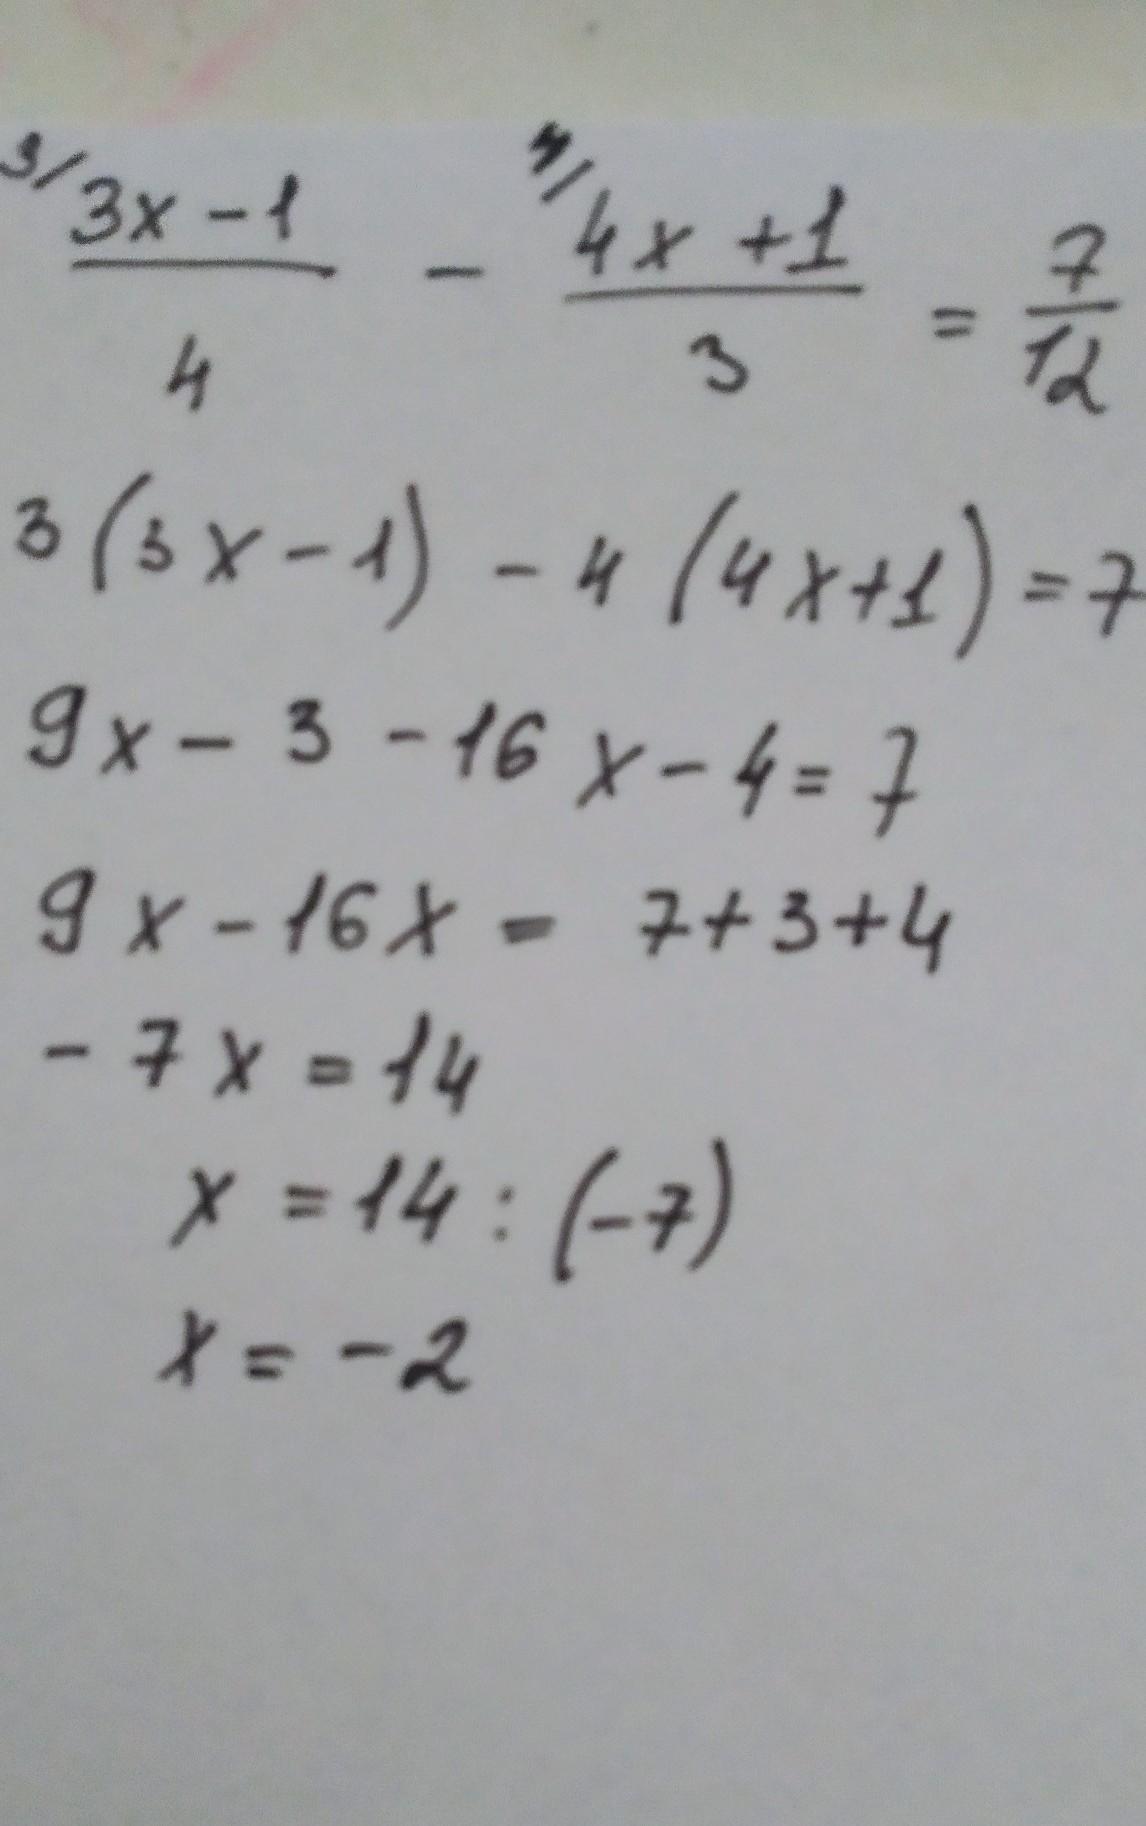 3/ 3x-1/4 - 4/ 4x+1/3 = 7/12
3(3x-1)-4(4x+1)=7
9x-3-16x-4=7
9x-16x=7+3+4
-7x=14
x=14:(-7)
x=-2